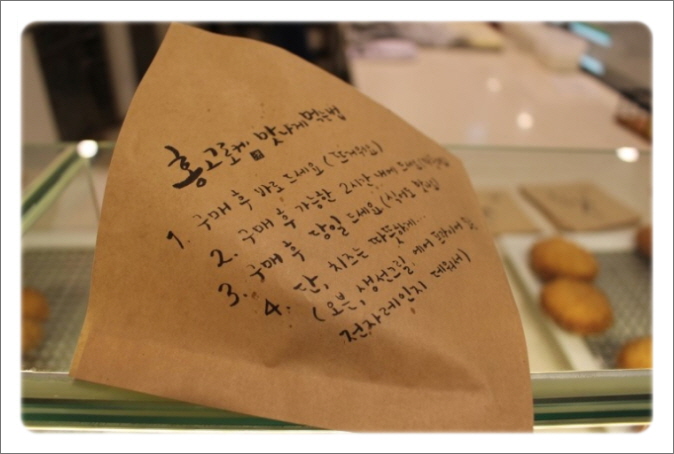 홍고로케 맛나게 먹는법
1. 구매 후 바로 드세요 (뜨거워요)
2. 구매 후 가능한 2시간 내에 드세요
3. 구매 후 당일 드세요 (식어도
4. 단, 치즈는 따뜻하게...
(오븐, 생선그릴, 에어 프라이어
전자레인지 데워서)